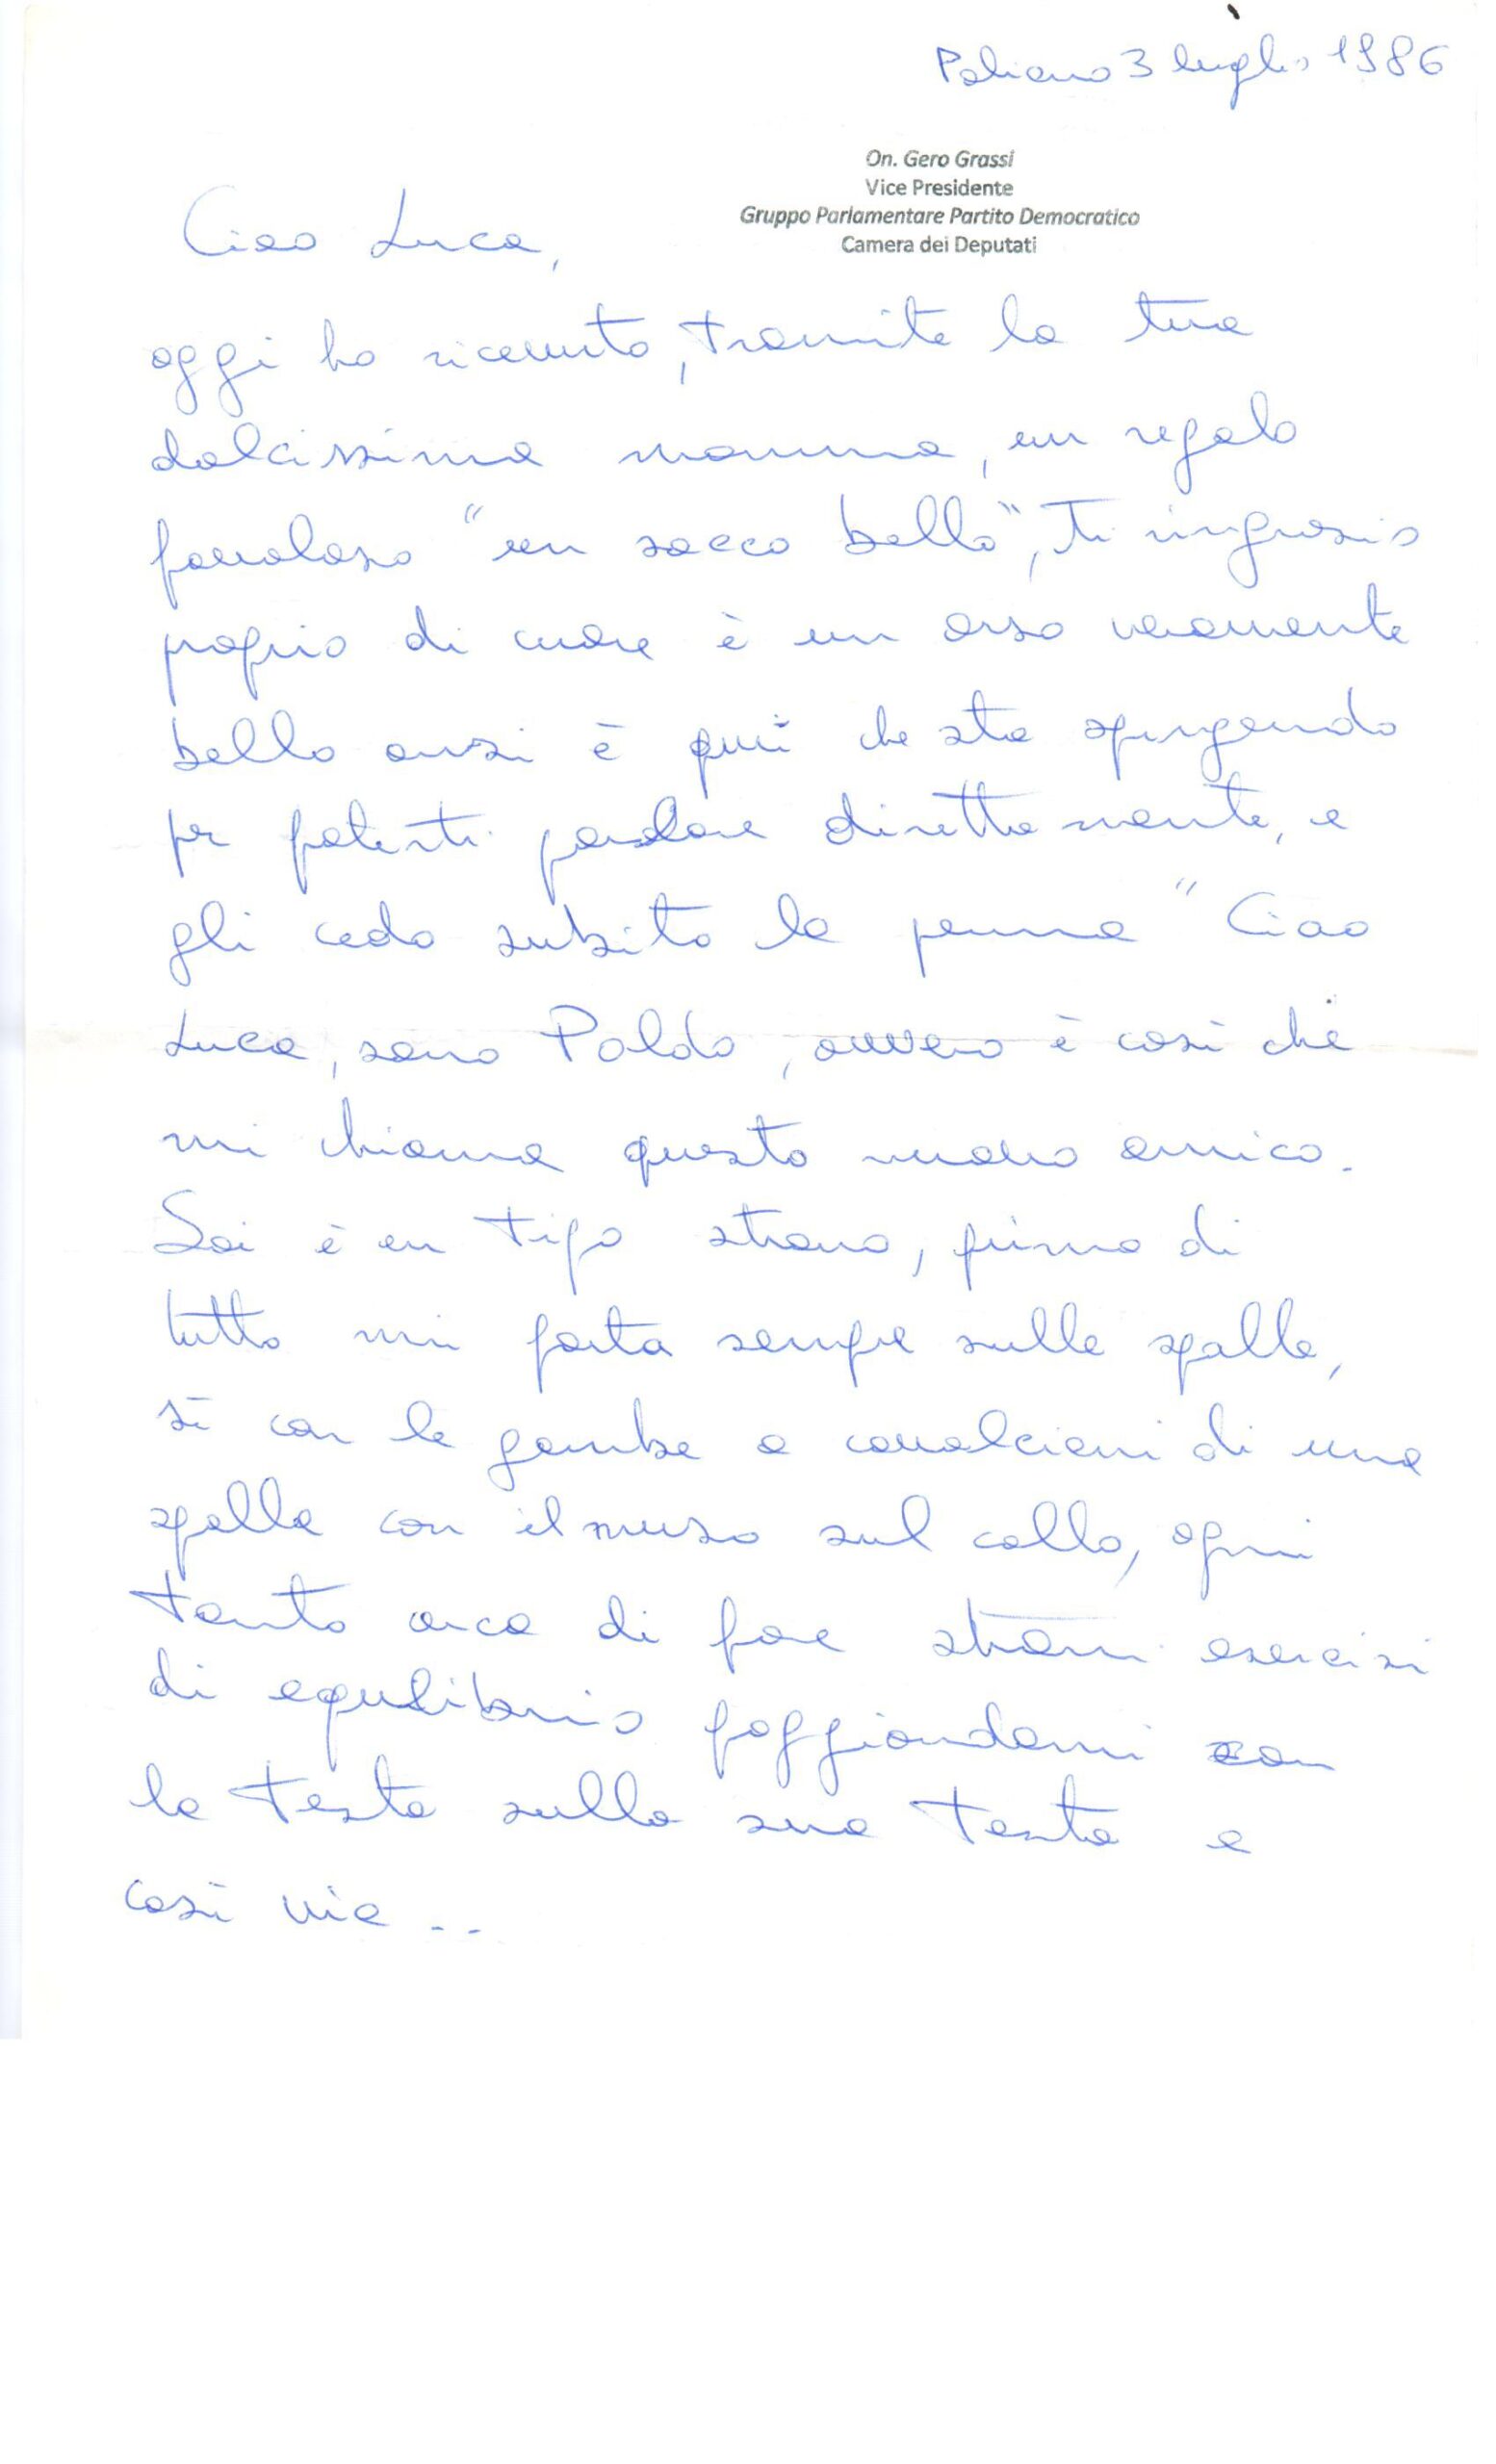 Paliano 3 luglio 1986
On. Gero Grassi
Vice Presidente
Gruppo Parlamentare Partito Democratico
Camera dei Deputati
Ciao Luca,
oggi ho ricevuto, tramite la tua
dolcissima mamma, un regalo
favoloso "un sacco bello", ti ringrazio
proprio di cuore è un orso veramente
bello anzi è qui che sta spingendo
per poterti parlare direttamente, e
gli cedo subito la penna "Ciao
Luca, sono Poldo, ovvero è così che
mi chiama questo nuovo amico.
Sai è un tipo strano, primo di
tutto mi porta sempre sulle spalle,
sì con le gambe a cavalcioni di una
spalla con il muso sul collo, ogni
tanto cerca di fare strani esercizi
di equlibrio poggiandomi con
la testa sulla sua testa e
così via ..